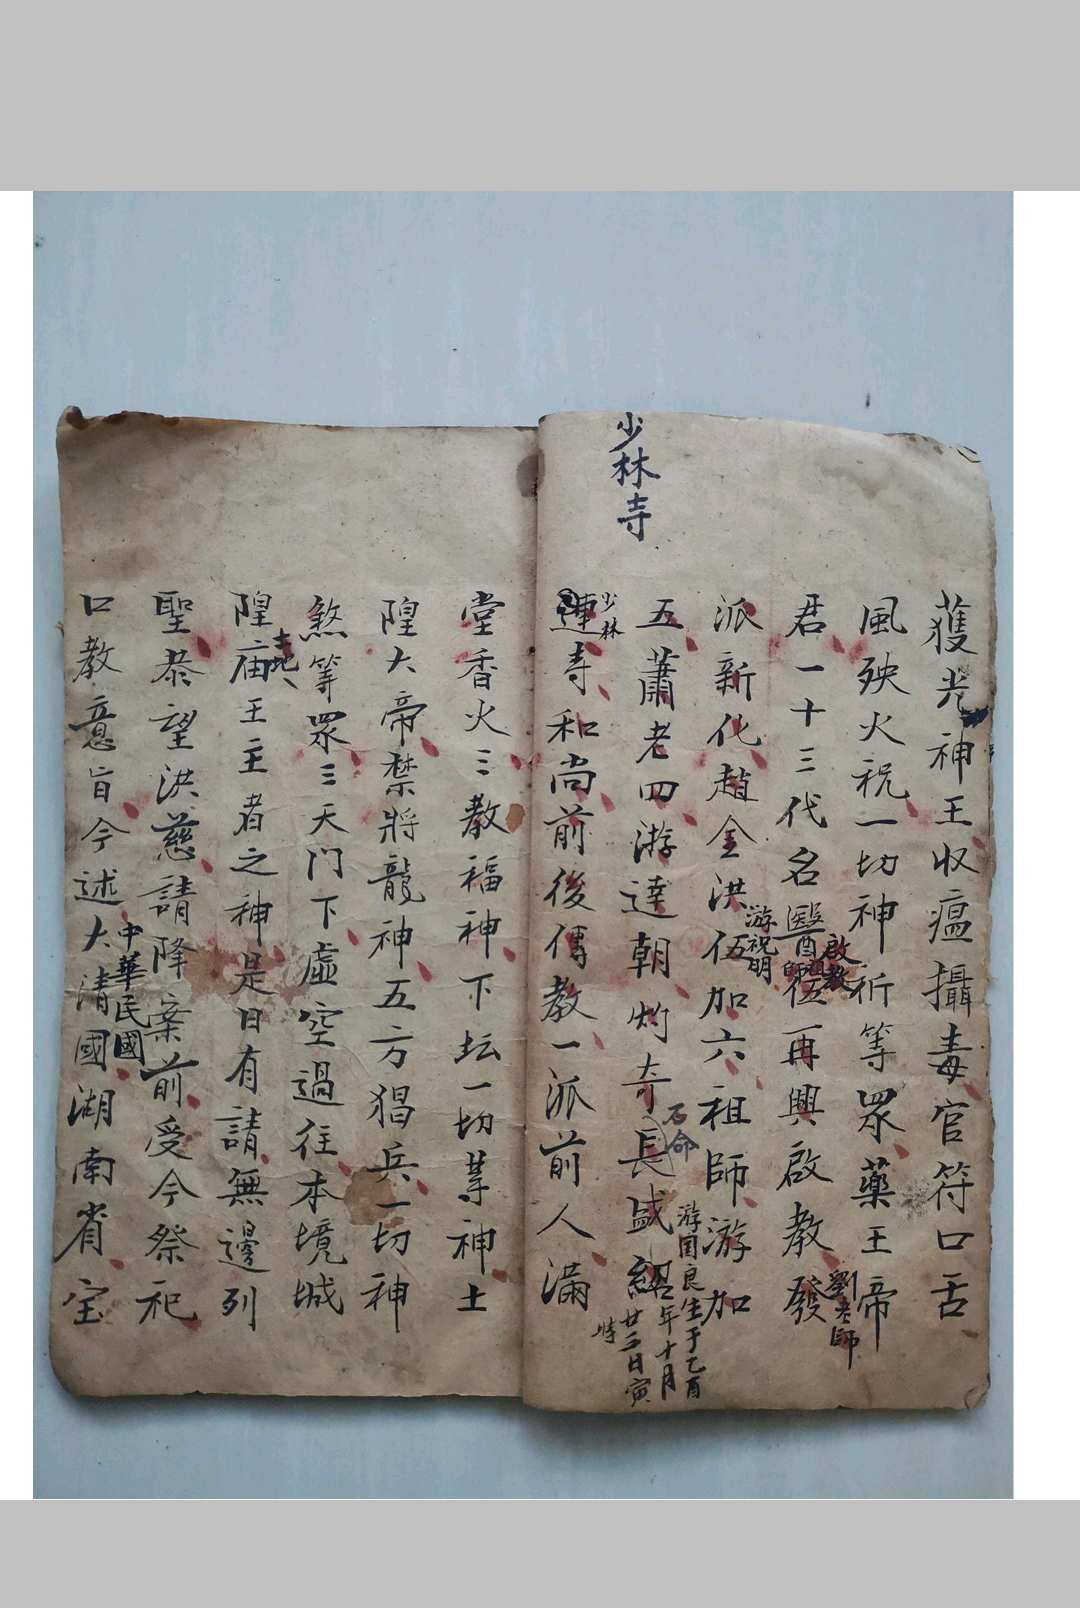 少林寺
獲光神王收瘟攝毒官符口舌
風殃火祝一切神祈等眾藥王帝
君一十三代名醫伍再興啟教發
啟教
劉老師
派新化趙全洪伍加六祖師游加
游祝明
五蕭老四游達朝灼奇長盛紹
石命
游国良生于乙酉
年十月
廿三日寅
時
連寺和尚前後傳教一派前人滿
少林
堂香火三教福神下坛一切等神土
隍大帝禁將龍神五方猖兵一切神
煞等眾三天門下虛空過往本境城
隍庙王主者之神是日有請無邊列
聖恭望洪慈請降案前受今祭祀
口教意旨今述大清國湖南省宝
中華民國